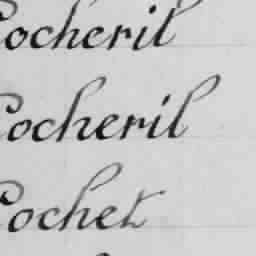 Cocheril
Cocheril
Cochet